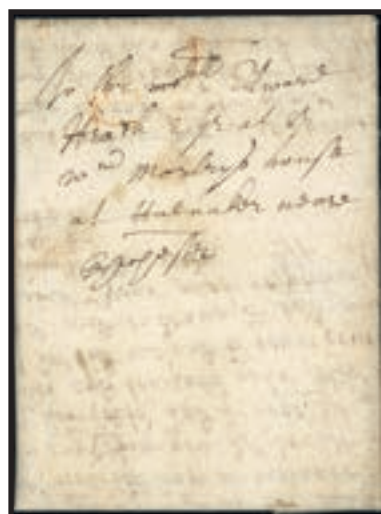 To the wor^ll Edward
Heath Esqr at Sr
W^m Morleys house
at Halnaker neare